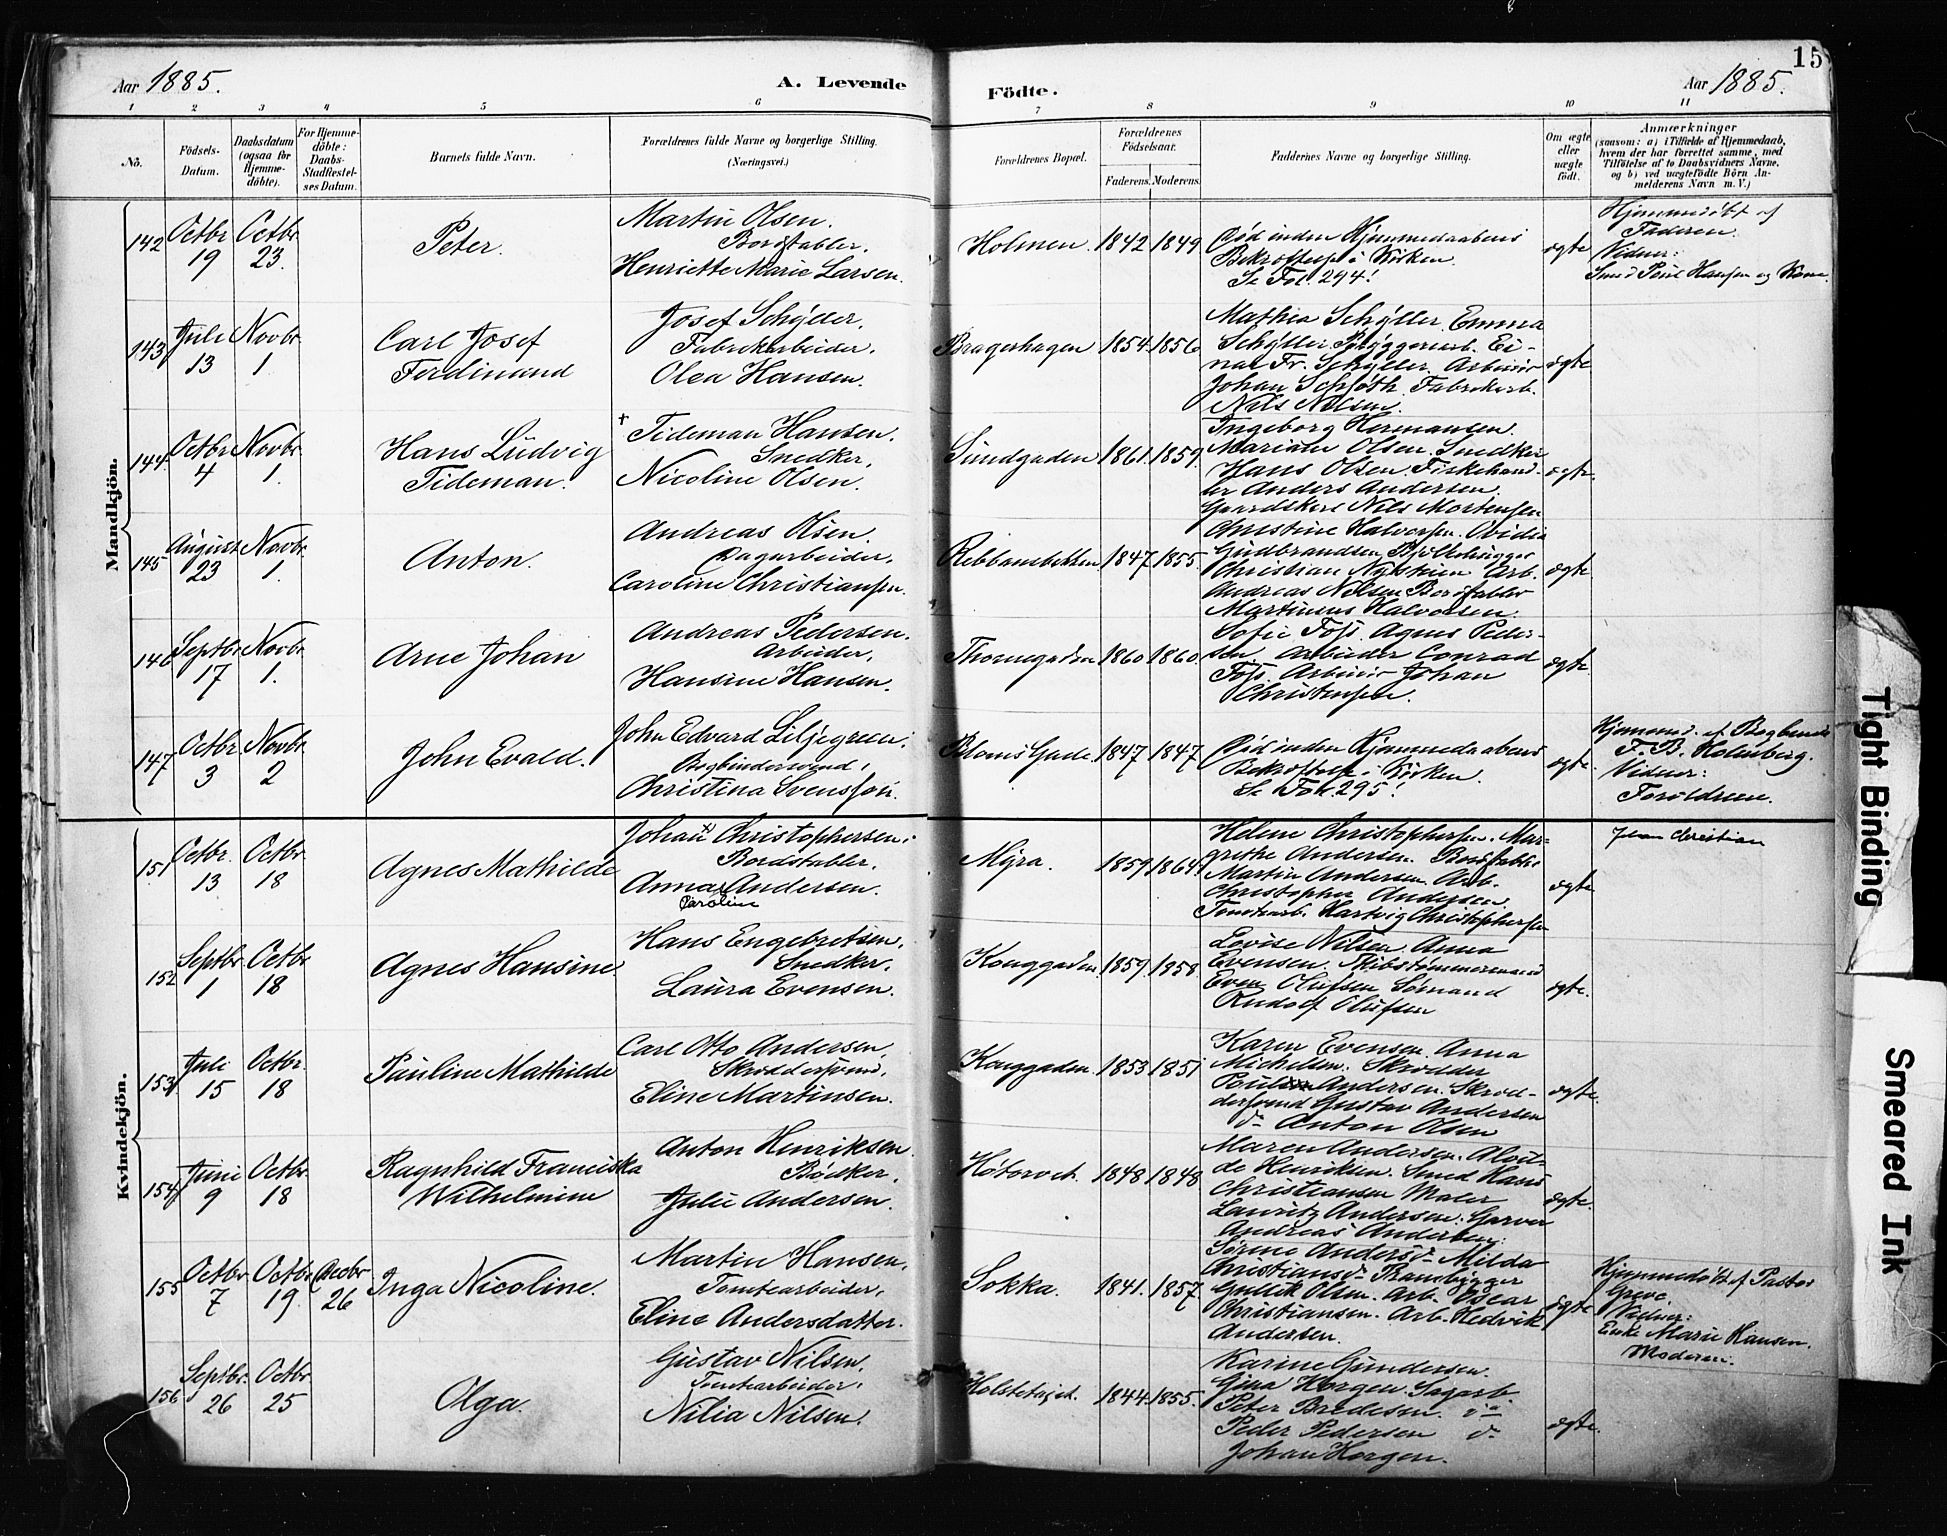 15
Aar 1885.
A. Levende
Födte.
Aar 1885.
1 2 3 4 5 6 7 8 9 10 11
No.
Födsels-
Datum.
Daabsdatum
(ogsaa for
Hjemme-
döbte).
For Hjemme-
döbte:
Daabs-
Stadfæstel-
ses Datum.
Barnets fulde Navn.
Forældrenes fulde Navne og borgerlige Stilling.
(Næringsvei.)
Forældrenes Bopæl.
Forældrenes
Födselsaar.
Faderens. Moderens.
Faddernes Navne og borgerlige Stilling.
Om ægte
eller
uægte
födt.
Anmærkninger
(saasom: a) i Tilfælde af Hjemmedaab,
hvem der har forrettet samme, med
Tilföielse af to Daabsvidners Navne,
og b) ved uægtefödte Börn An-
melderens Navn m. V.)
Mandkjön.
142
Octbr
19
Octbr
23.
Peter.
Martin Olsen.
Bordstabler.
Henriette Marie Larsen.
Holmen.
1842
1849
Død inden Hjemmedaabens
Bekræftelse i Kirken.
Se Fol. 294!
ægte
Hjemmedøbt af
Faderen.
Vidner:
Smed Paul Hansen og Kone.
143
Juli
13
Novbr
1
Carl Josef
Ferdinand
Josef Schÿller.
Fabrikarbeider.
Olea Hansen.
Bragerhagen
1854
1856
Mathia Schÿller. Emma
Schÿller. Bryggeriarb. Ei-
nar Fr. Schÿller. Arbeider
Johan Schjøth. Fabrikarb.
Nils Nilsen.
ægte
144
Octbr
4
Novbr
1.
Hans Ludvig
Tideman.
+ Tideman Hansen.
Snedker.
Nicoline Olsen.
Sundgaden
1861.
1859.
Ingeborg Hermansen.
Mariane Olsen. Snedker
Hans Olsen. Fiskehand-
ler Anders Andersen.
Gaardskarl Nils Mortensen
ægte.
145
August
23
Novbr
1.
Anton.
Andreas Olsen.
Dagarbeider.
Caroline Christiansen.
Ribbansbakken
1847
1855.
Christine Halvorsen. Ovidia
Gudbrandsen. Bjelkehugger
Christian Nykstuen. Arb.
Andreas Nilsen. Bordstabler
Martinius Halvorsen.
ægte
146
Septbr
17
Novbr
1.
Arne Johan
Andreas Pedersen.
Arbeider.
Hansine Hansen.
Thornegaden
1860
1860.
Sofie Foss. Agnes Peder-
sen. Arbeider Conrad
Foss. Arbeider Johan
Christensen.
ægte.
147
Octbr.
3
Novbr
2
John Evald.
John Edvard Liljegreen.
Bogbindersvend.
Christina Svensson.
Bloms Gade.
1847
1847
Død inden Hjemmedaabens
Bekræftelse i Kirken.
Se Fol. 295!
ægte.
Hjemmed. af Bogbinder
F. B. Holmberg.
Vidner:
Forældrene.
Kvindekjön.
151
Octbr.
13
Octbr
18
Agnes Mathilde
Johan + Christophersen.
Bordstabler.
Anna Andersen.
Caroline
Mÿra.
1859
1864
Helene Christophersen. Mar-
grethe Andersen. Bordstabler
Martin Andersen. Arb.
Christopher Andersen.
Tomtearb. Hartvig Christophersen
ægte
Johan Christian
152
Septbr.
1
Octbr
18
Agnes Hansine
Hans Engebretsen.
Snedker.
Laura Evensen.
Konggaden.
1859.
1858.
Lovise Nilsen. Anna
Evensen. Skibstømmermand
Even Olufsen. Sømand
Rudolf Olufsen
ægte.
153
Juli
15
Octbr.
18
Pauline Mathilde
Carl Otto Andersen.
Skræddersvend.
Eline Martinsen.
Konggaden.
1853
1851
Karen Evensen. Anna
Michelsen. Skrædder
Paul Andersen. Skræd-
dersvend Gustav Andersen
do Anton Olsen
ægte.
154
Juni
9
Octbr.
18
Ragnhild Franciska
Wilhelmine
Anton Henriksen.
Bødker.
Julie Andersen.
Høtorvet.
1848
1848
Maren Andersen. Alvil-
de Henriksen. Smed Hans
Christiansen. Maler
Lauritz Andersen. Garver
Andreas Andersen.
ægte.
155
Octbr
7
Octbr
19.
Decbr
26
Inga Nicoline.
Martin Hansen.
Tomtearbeider.
Eline Andersdatter.
Sokka.
1841.
1857.
Sørine Andersd. Milda
Christiansd. Prambygger
Gullik Olsen. Arb. Oscar
Christiansen. Arb. Hedvik
Andersen.
ægte
Hjemmedøbt af Pastor
Greve
Vidner:
Enke Marie Hansen.
Moderen.
156
Septbr.
26
Octbr.
25
Olga.
Gustav Nilsen.
Tomtearbeider.
Nilia Nilsen.
Holstetøjet.
1844.
1855.
Karine Gundersen.
Gina Horgen. Sagarb.
Peter Bredesen. do
Peder Pedersen do
Johan Horgen.
ægte.
Tight Binding
Smeared Ink